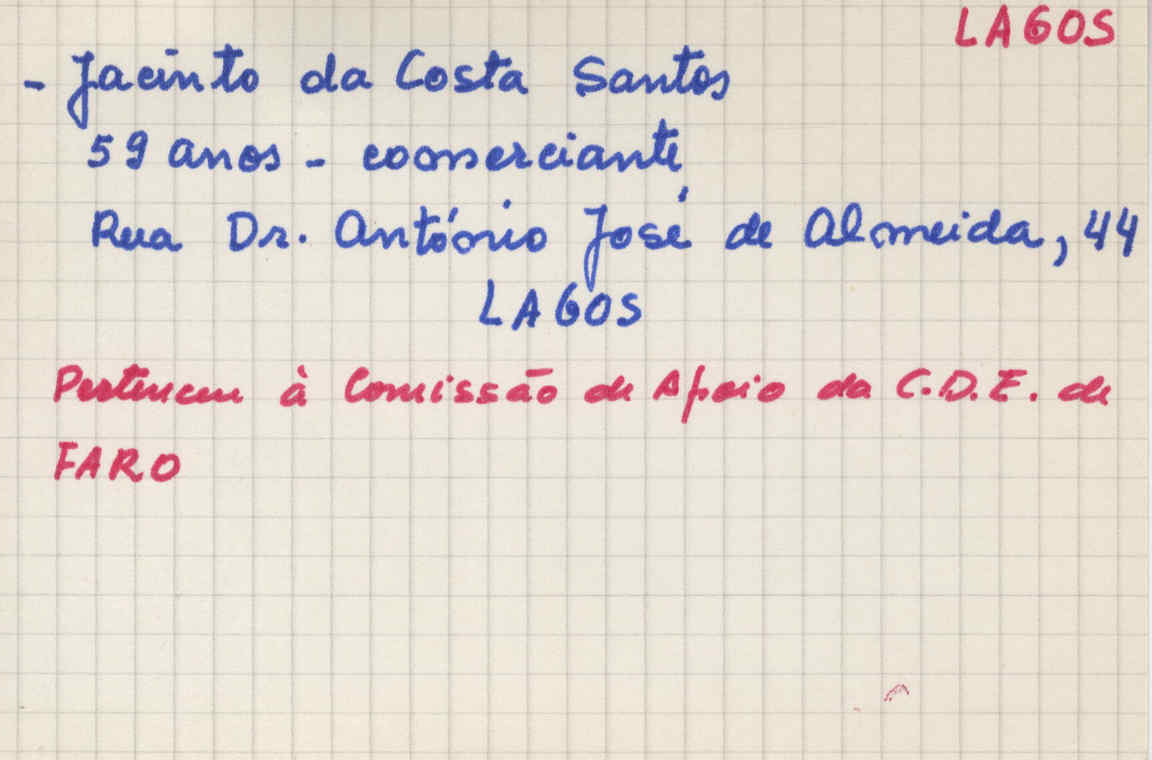 LAGOS
- Jacinto da Costa Santos
59 anos - comerciante
Rua Dr. António José de Almeida, 44
LAGOS
Pertenceu à Comissão de Apoio da C.D.E. de
FARO